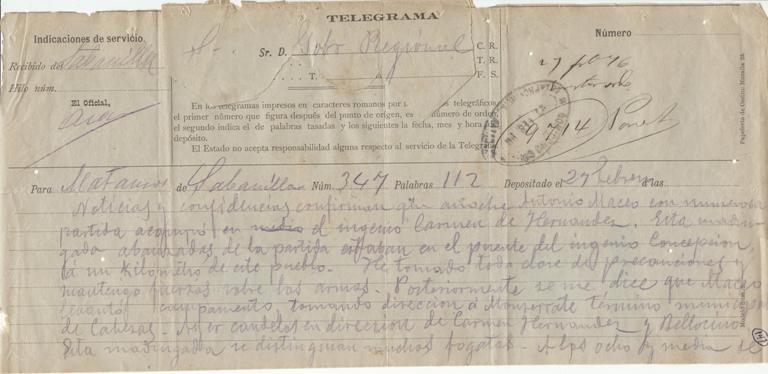 TELEGRAMA
Indicaciones de servicio.
Recibido de Sabanilla
Hilo núm.
El Oficial,
S.
Sr. D. Gobr Regional
C. R.
T. R.
F. S.
T.
En los telegramas impresos en caracteres romanos por telegráficos
el primer número que figura después del punto de origen, es número de orden
el segundo indica el de palabras tasadas y los siguientes la fecha, mes y hora
depósito.
El Estado no acepta responsabilidad alguna respecto al servicio de la Telegr
Número
9714
Para Matanzas de Sabanilla Núm. 347 Palabras 112 Depositado el 27 febrero á las
Noticias y confidencias confirman que anoche Antonio Maceo con numerosa
partida acampó en el ingenio Carmen de Hernandez. Esta madru
gada abanzadas de la partida estaban en el ponente del ingenio Concepcion,
á un kilómetro de este pueblo. He tomado toda clase de precauciones y
mantengo fuerzas sobre las armas. Posteriormente se me dice que Maceo
campamento, tomando direccion á Monserrate término municipal
de Cabezas. en direccion de Carmen Hernandez y Bellocino
Esta madrugada se distinguian muchas fogatas. A las ocho y media de